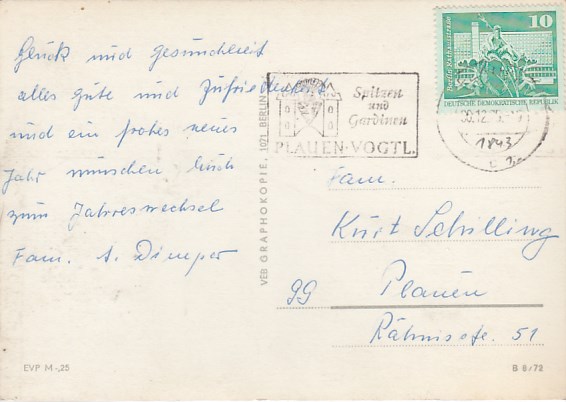 Glück und gesundheit
alles gute und Zufriedenheit
und ein frohes neues
Jahr wünschen Euch
zum Jahreswechsel
Fam. A. Dimper
EVP M -,25
VEB GRAPHOKOPIE, 1071 BERLIN
Spitzen
und
Gardinen
PLAUEN-VOGTL.
10
DEUTSCHE DEMOKRATISCHE REPUBLIK
Fam.
Kurt Schilling
99 Plauen
Rähnisstr. 51
B 8/72